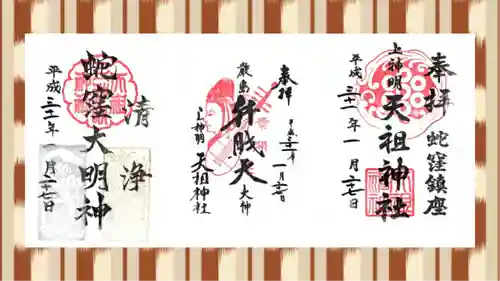 奉拝
蛇窪鎮座
上神明
天祖神社
平成三十一年一月二十七日
奉拝
平成三十一年
一月二十七日
厳島
弁財天
大神
上神明
天祖神社
清浄
蛇窪大明神
平成三十一年一月二十七日